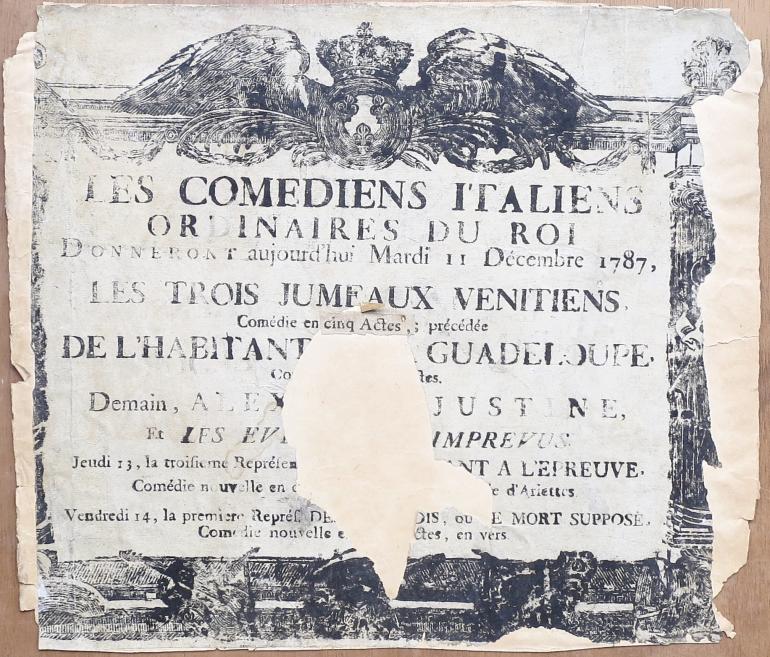 LES COMEDIENS ITALIENS
ORDINAIRES DU ROI
DONNERONT aujourd'hui Mardi 11 Décembre 1787,
LES TROIS JUMEAUX VENITIENS,
Comédie en cinq Actes, ; précédée
DE L'HABITANT GUADELOUPE.
Co ctes.
Demain, ALEX JUSTINE,
Et LES EVE IMPREVUS.
Jeudi 13, la troisieme Représen ANT A L'EPREUVE.
Comédie nouvelle en d'Ariettes.
Vendredi 14, la premiere Représ. DE DIS, ou LE MORT SUPPOSE,
Comédie nouvelle e ctes, en vers